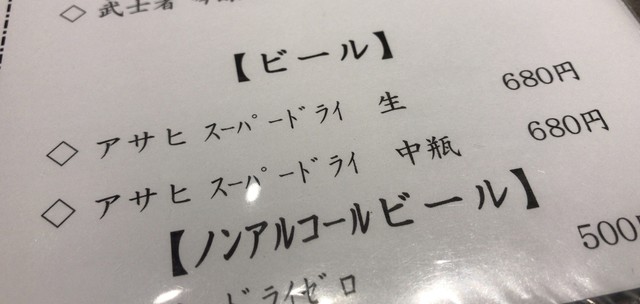 ◇ 武士者
【ビール】
◇ アサヒ スーパードライ 生 680円
◇ アサヒ スーパードライ 中瓶 680円
【ノンアルコールビール】
ドライゼロ 500円